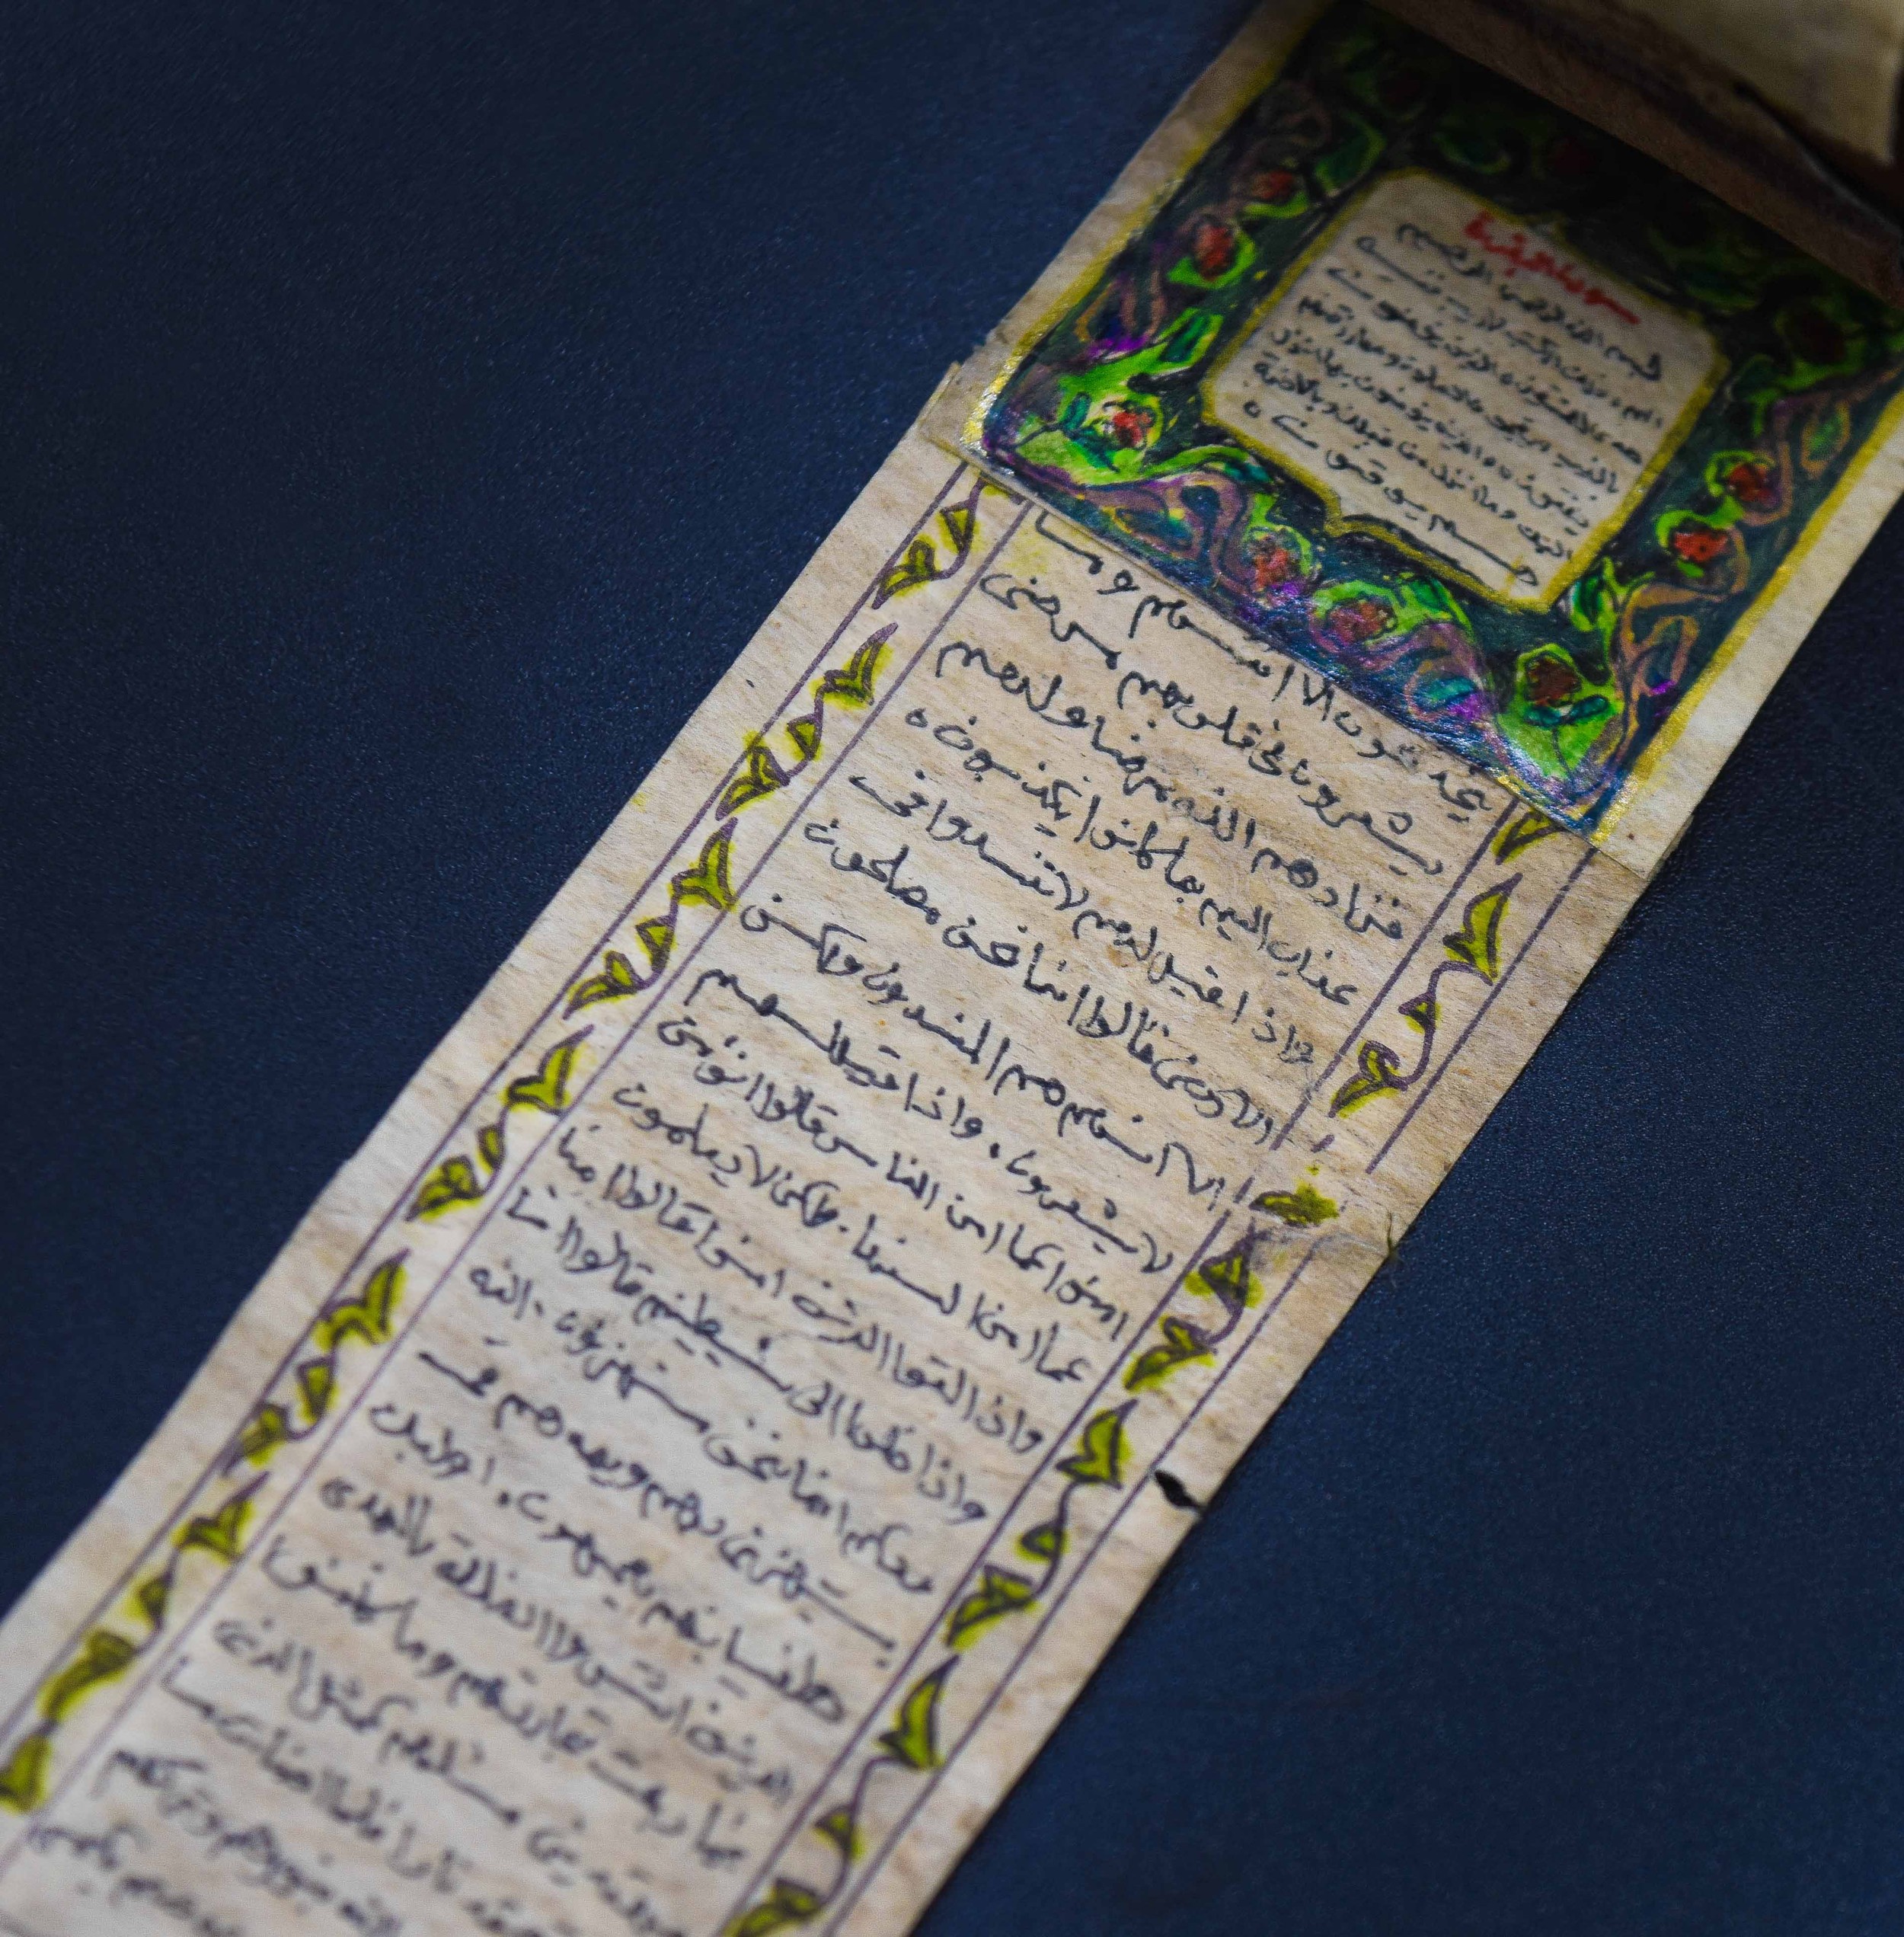 سورة البقرة
بسم الله الرحمن الرحيم
الم ه ذلك الكتب لا ريب فيه
هدى للمتقين ه الذين يؤمنون
بالغيب ويقيمون الصلاة ومما رزقنهم
ينفقون ه والذين يؤمنون بما انزل
اليك وما انزل من قبلك وبالاخرة
هم يوقنون ه
يخدعون الا انفسهم وما
يشعرون في قلوبهم مرض
فزادهم الله مرضا ولهم
عذاب اليم بما كانوا يكذبون ه
واذا قيل لهم لا تفسدوا في
الارض قالوا انما نحن مصلحون
الا انهم هم المفسدون ولكن
لا يشعرون ه واذا قيل لهم
امنوا كما امن الناس قالوا انؤمن
كما امن السفها ولكن لا يعلمون
واذا لقوا الذين امنوا قالوا امنا
واذا خلوا الى شيطينهم قالوا انا
معكم انما نحن مستهزون ه الله
يستهزئ بهم ويمدهم في
طغينهم يعمهون ه اولئك
الذين اشتروا الضللة بالهدى
فما ربحت تجارتهم وما كانوا
مهتدين مثلهم كمثل الذي
استوقد نارا فلما اضاءت ما
الله بنورهم وتركهم